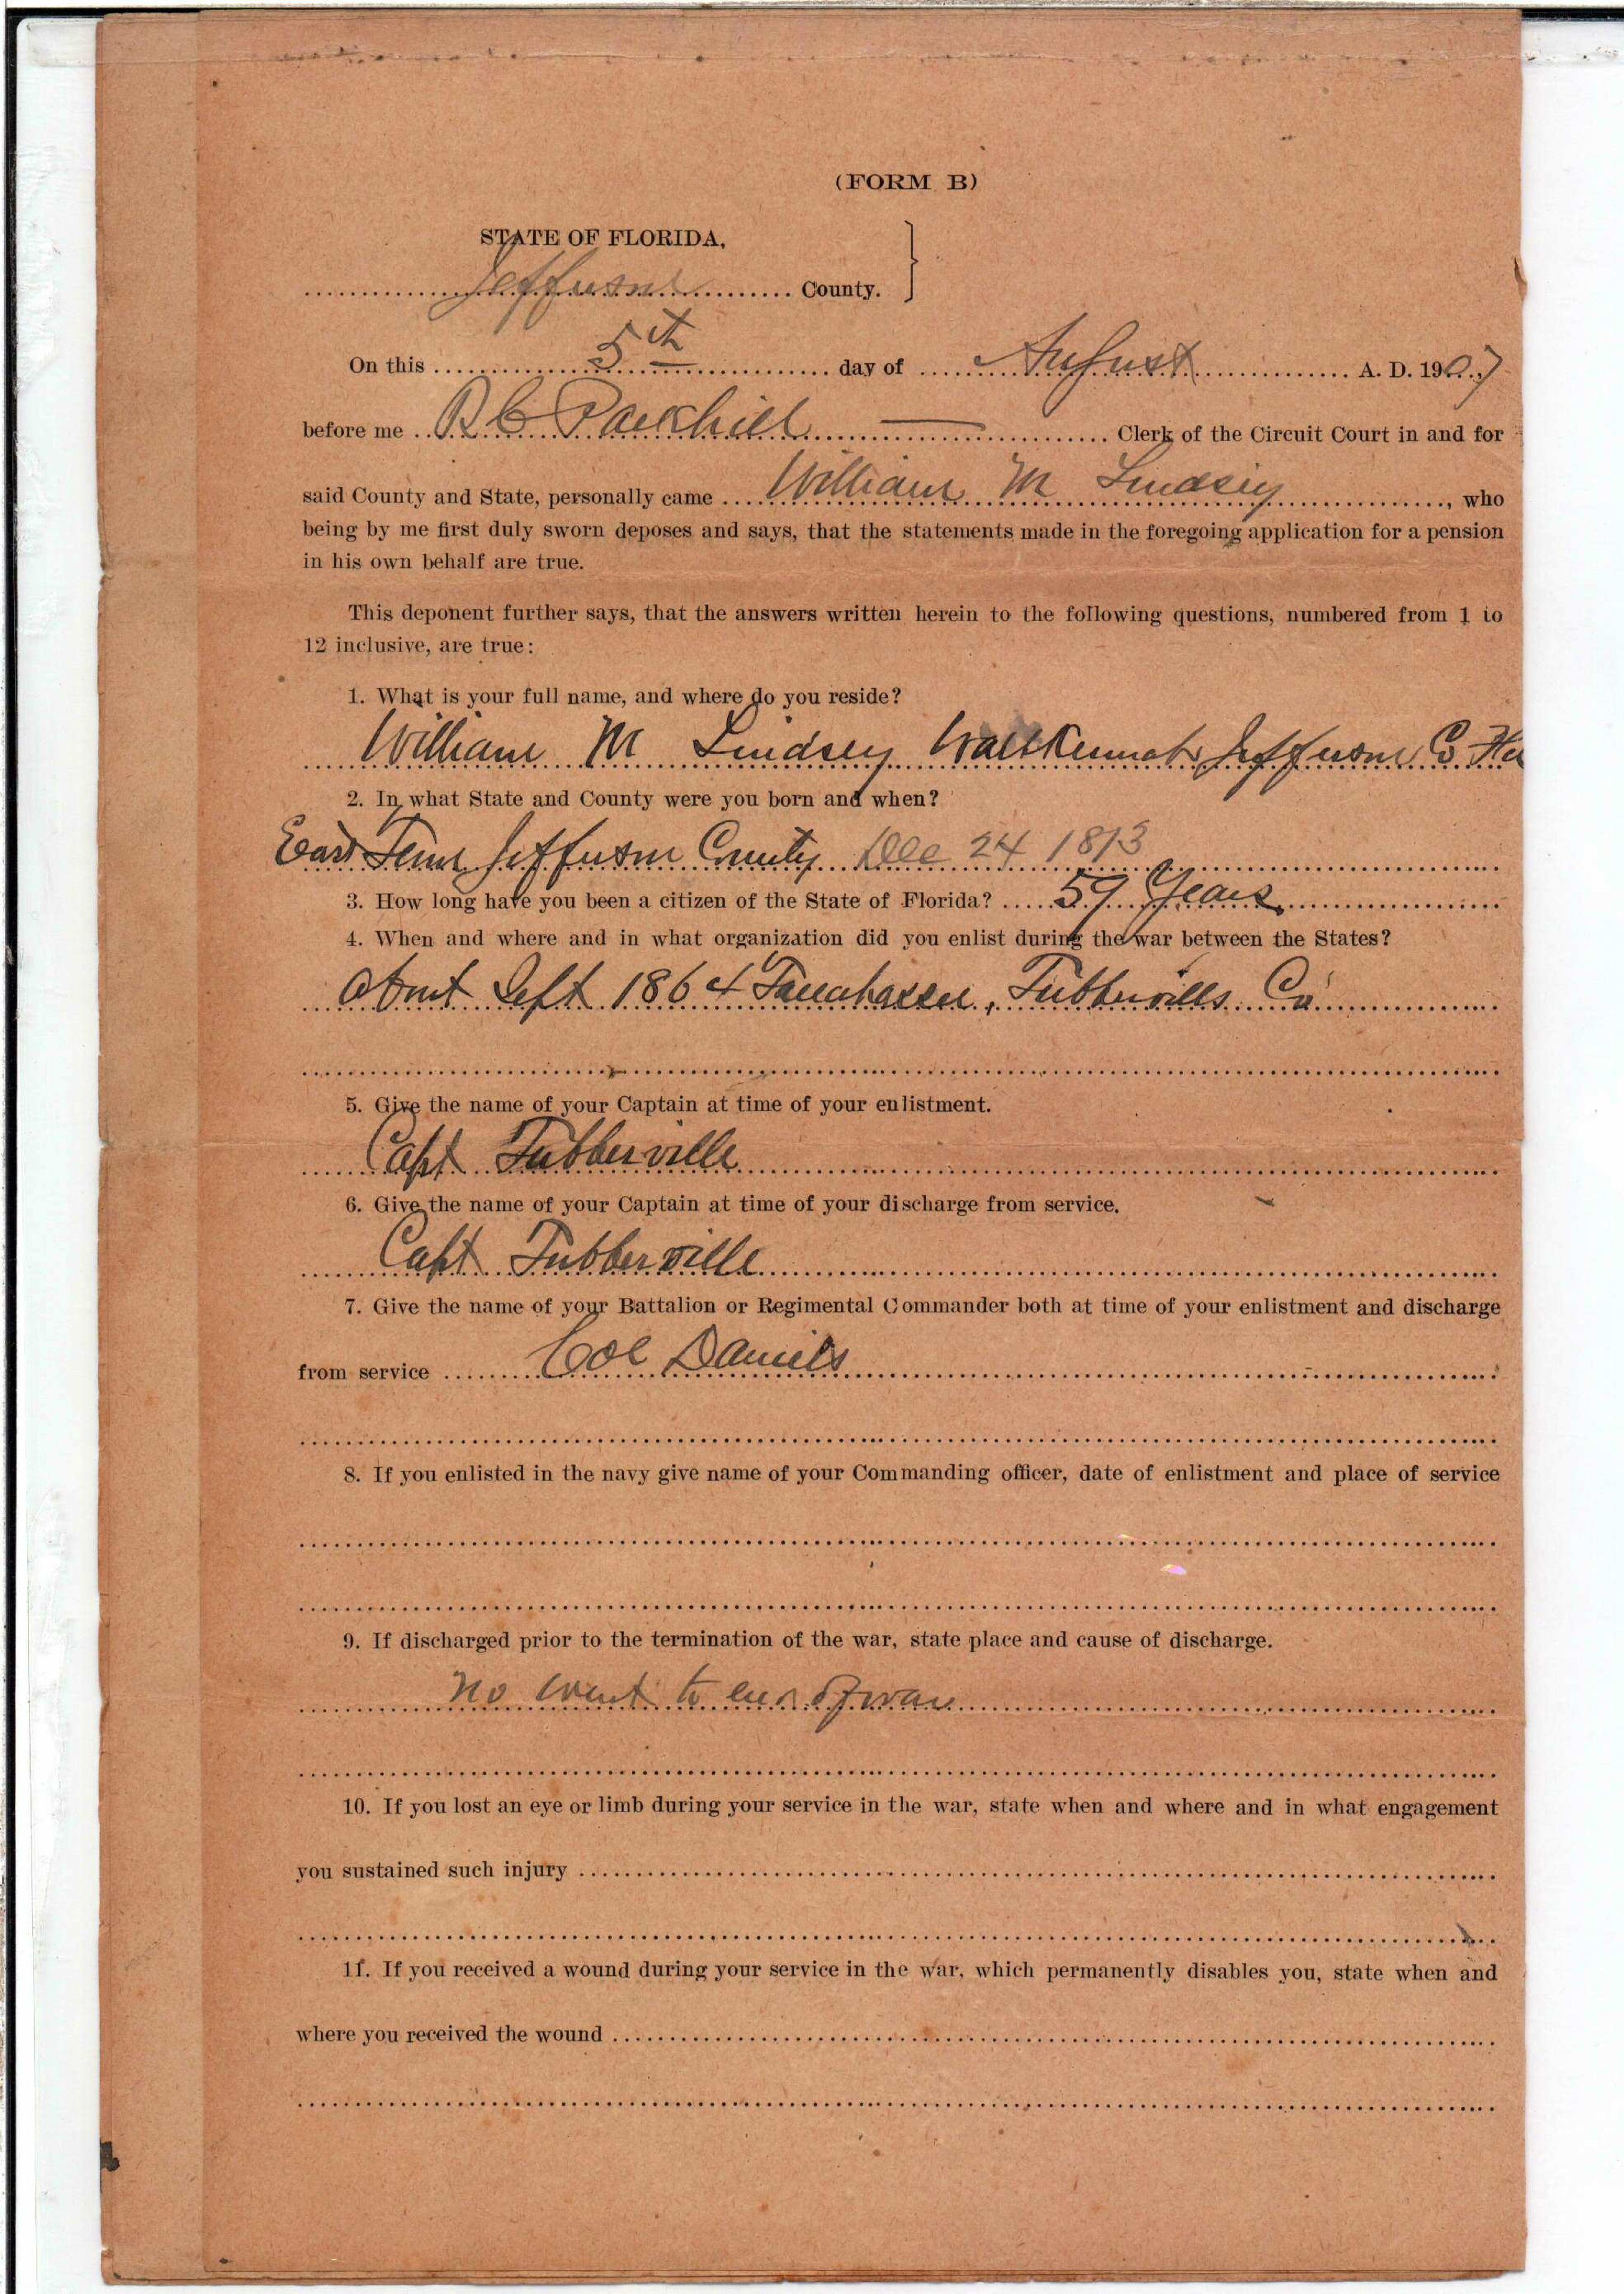 (FORM B)
STATE OF FLORIDA,
Jefferson County.
On this 5th day of August A. D. 1907
before me R C Parkhill Clerk of the Circuit Court in and for
said County and State, personally came William M Lindsey, who
being by me first duly sworn deposes and says, that the statements made in the foregoing application for a pension
in his own behalf are true.
This deponent further says, that the answers written herein to the following questions, numbered from 1 to
12 inclusive, are true:
1. What is your full name, and where do you reside?
William M Lindsey Jefferson Co Fla
2. In what State and County were you born and when?
East Tenn Jefferson County Dec 24 1813
3. How long have you been a citizen of the State of Florida? 59 Years
4. When and where and in what organization did you enlist during the war between the States?
about Sept 1864 Tallahassee, Tubbervills Co
5. Give the name of your Captain at time of your enlistment.
Capt Tubberville
6. Give the name of your Captain at time of your discharge from service.
Capt Tubberville
7. Give the name of your Battalion or Regimental Commander both at time of your enlistment and discharge
from service Col Daniels
8. If you enlisted in the navy give name of your Commanding officer, date of enlistment and place of service
9. If discharged prior to the termination of the war, state place and cause of discharge.
No went to end of war
10. If you lost an eye or limb during your service in the war, state when and where and in what engagement
you sustained such injury
11. If you received a wound during your service in the war, which permanently disables you, state when and
where you received the wound